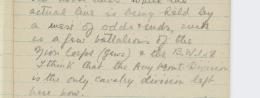 actual line is being held by
a mass of odds & ends, such
as a few battalions of the
Zion Corps (Jews) & the B.W.I.s &
I think that the Aus Mont. Division
is the only cavalry division left
here now.